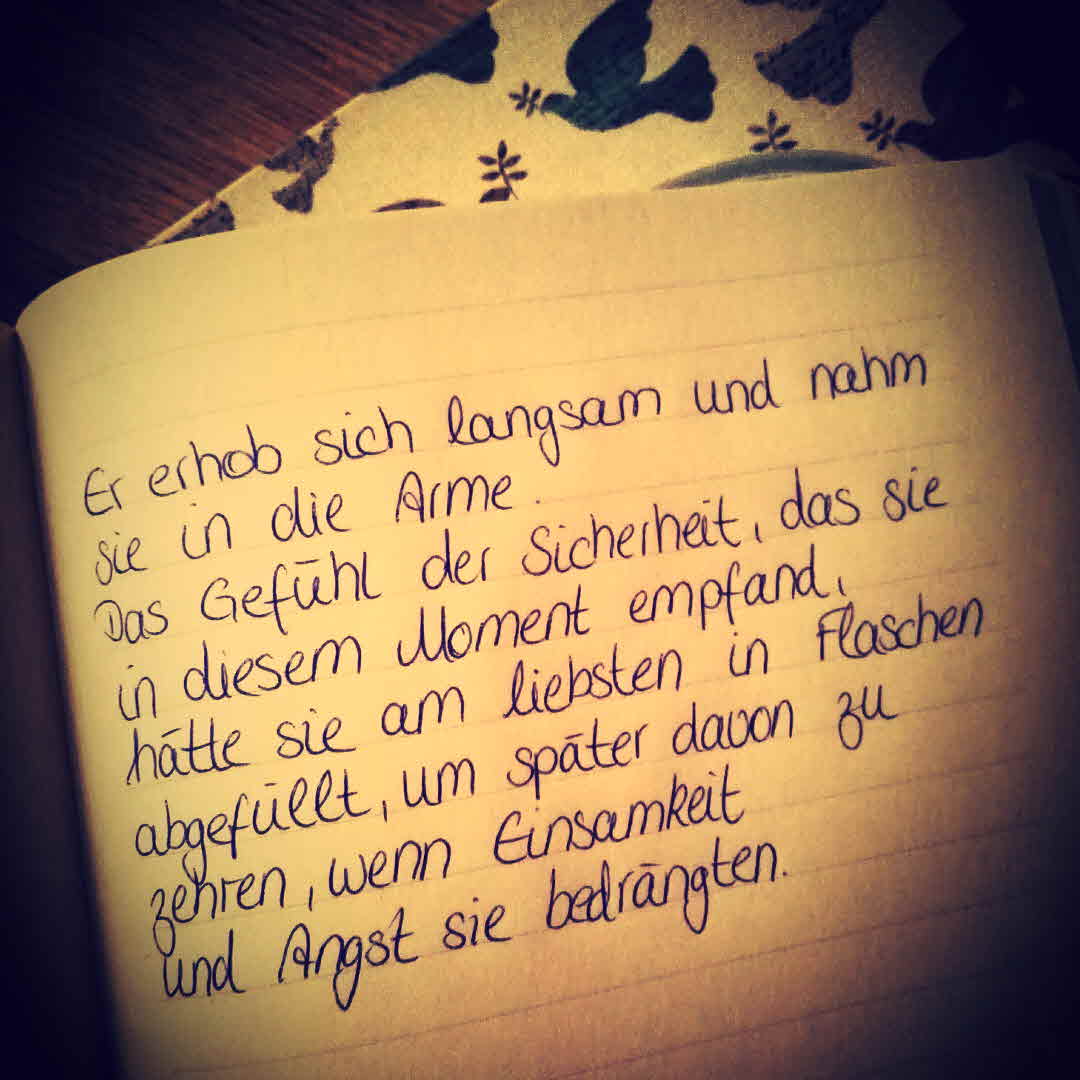 Er erhob sich langsam und nahm
sie in die Arme.
Das Gefühl der Sicherheit, das sie
in diesem Moment empfand,
hätte sie am liebsten in Flaschen
abgefüllt, um später davon zu
zehren, wenn Einsamkeit
und Angst sie bedrängten.